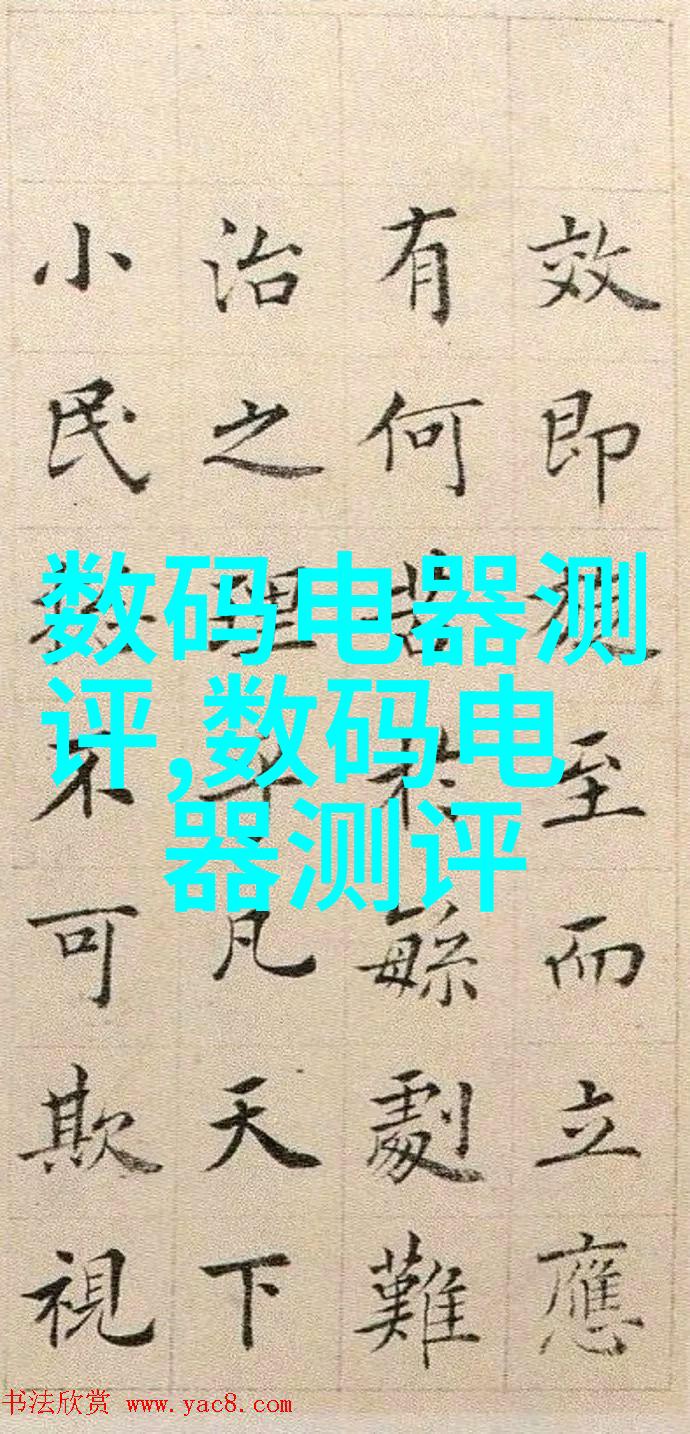 效即至而立應
有何於緐劇難
治之理凡天下
小民不可欺視
数码电器测
评,数码电
器测评
书法欣赏 www.yac8.com